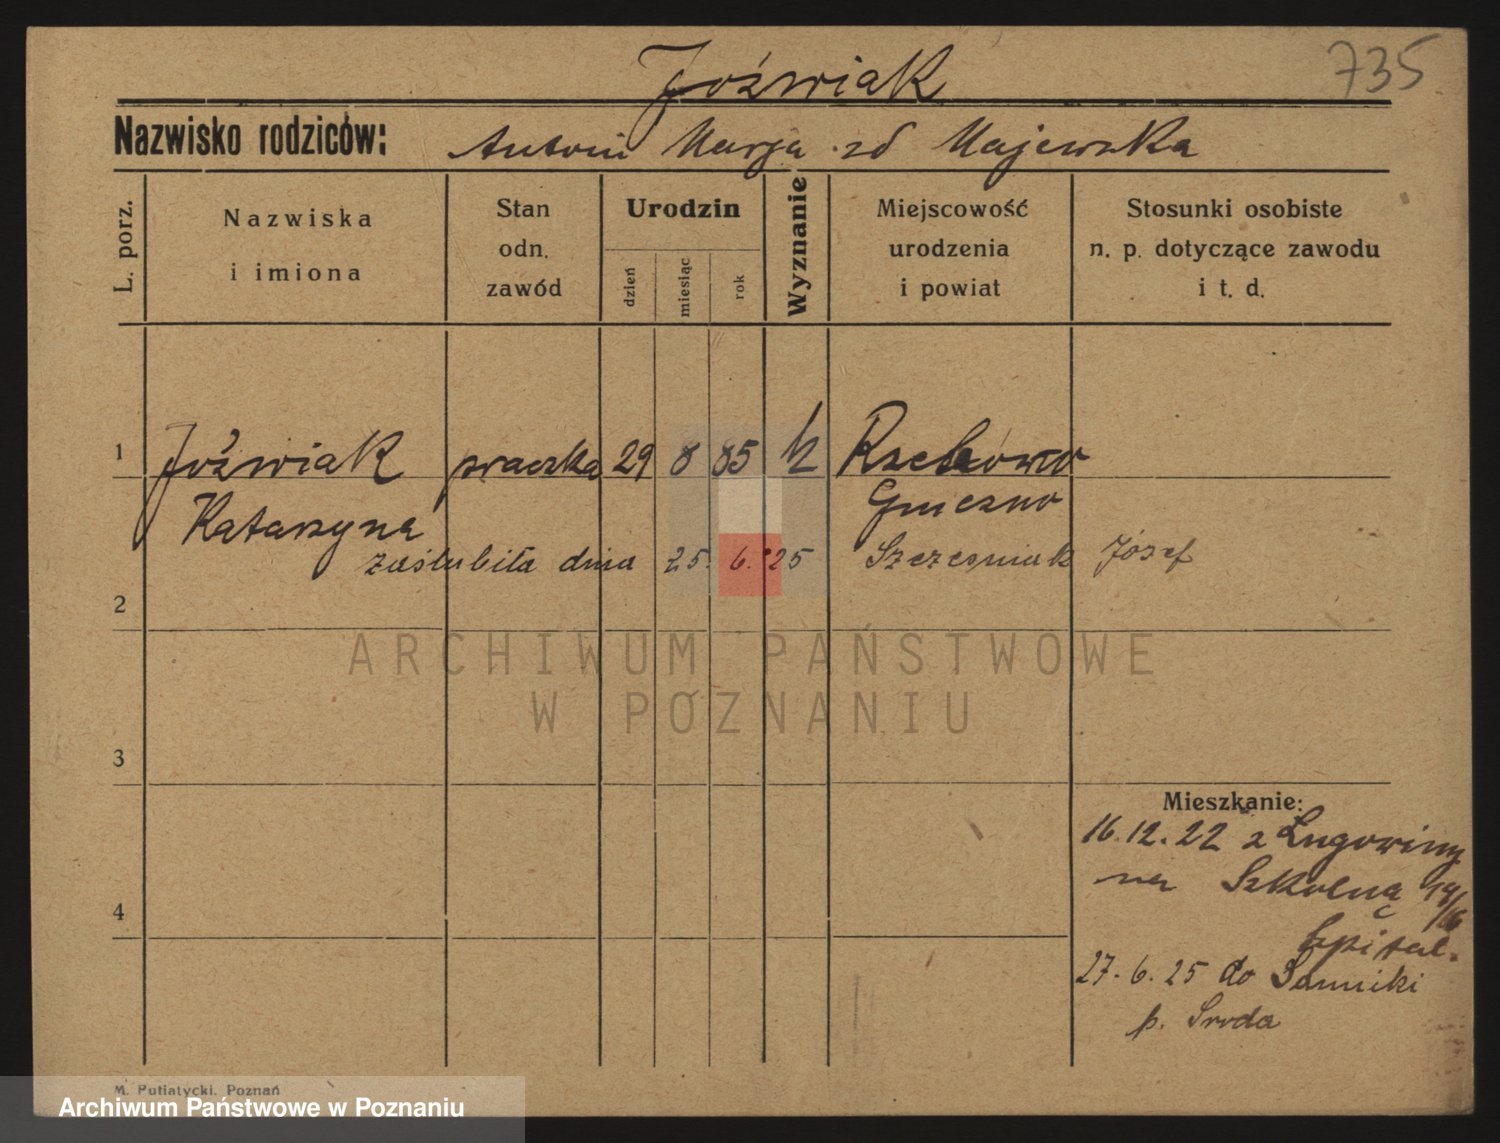 735
Jóźwiak
Nazwisko rodziców: Antoni Marja zd Majewska
L. porz.
Nazwiska
i imiona
Stan
odn.
zawód
Urodzin
dzień
miesiąc
rok
Wyznanie
Miejscowość
urodzenia
i powiat
Stosunki osobiste
n. p. dotyczące zawodu
i t. d.
1 Jóźwiak praczka 29 8 85 k
Katarzyna Gniezno
zaślubiła dnia 25. 6. 25 Szczesniak Józef
2
ARCHIWUM PAŃSTWOWE
W POZNANIU
3
Mieszkanie:
16.12.22 z Lugowiny
na Szkolną 14/16
Szpital.
4
27. 6. 25 do
p. Sroda
M. Putiatycki, Poznań
Archiwum Państwowe w Poznaniu